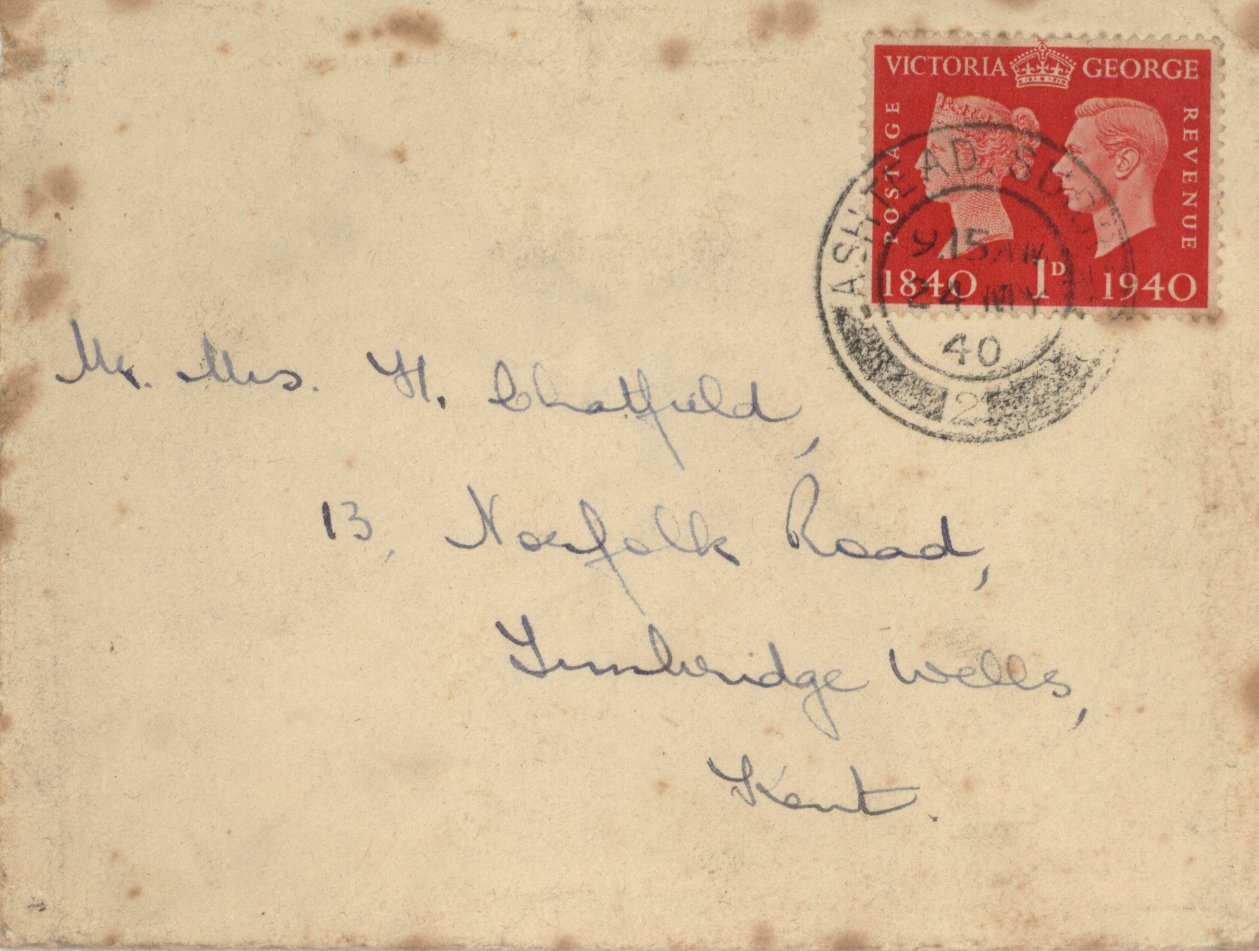 VICTORIA GEORGE
POSTAGE
REVENUE
1840 1D 1940
ASHTEAD SURREY
9.15 AM
24 MY
40
2
Mr. Mrs. H. Chatfield,
13, Norfolk Road,
Tunbridge Wells,
Kent.